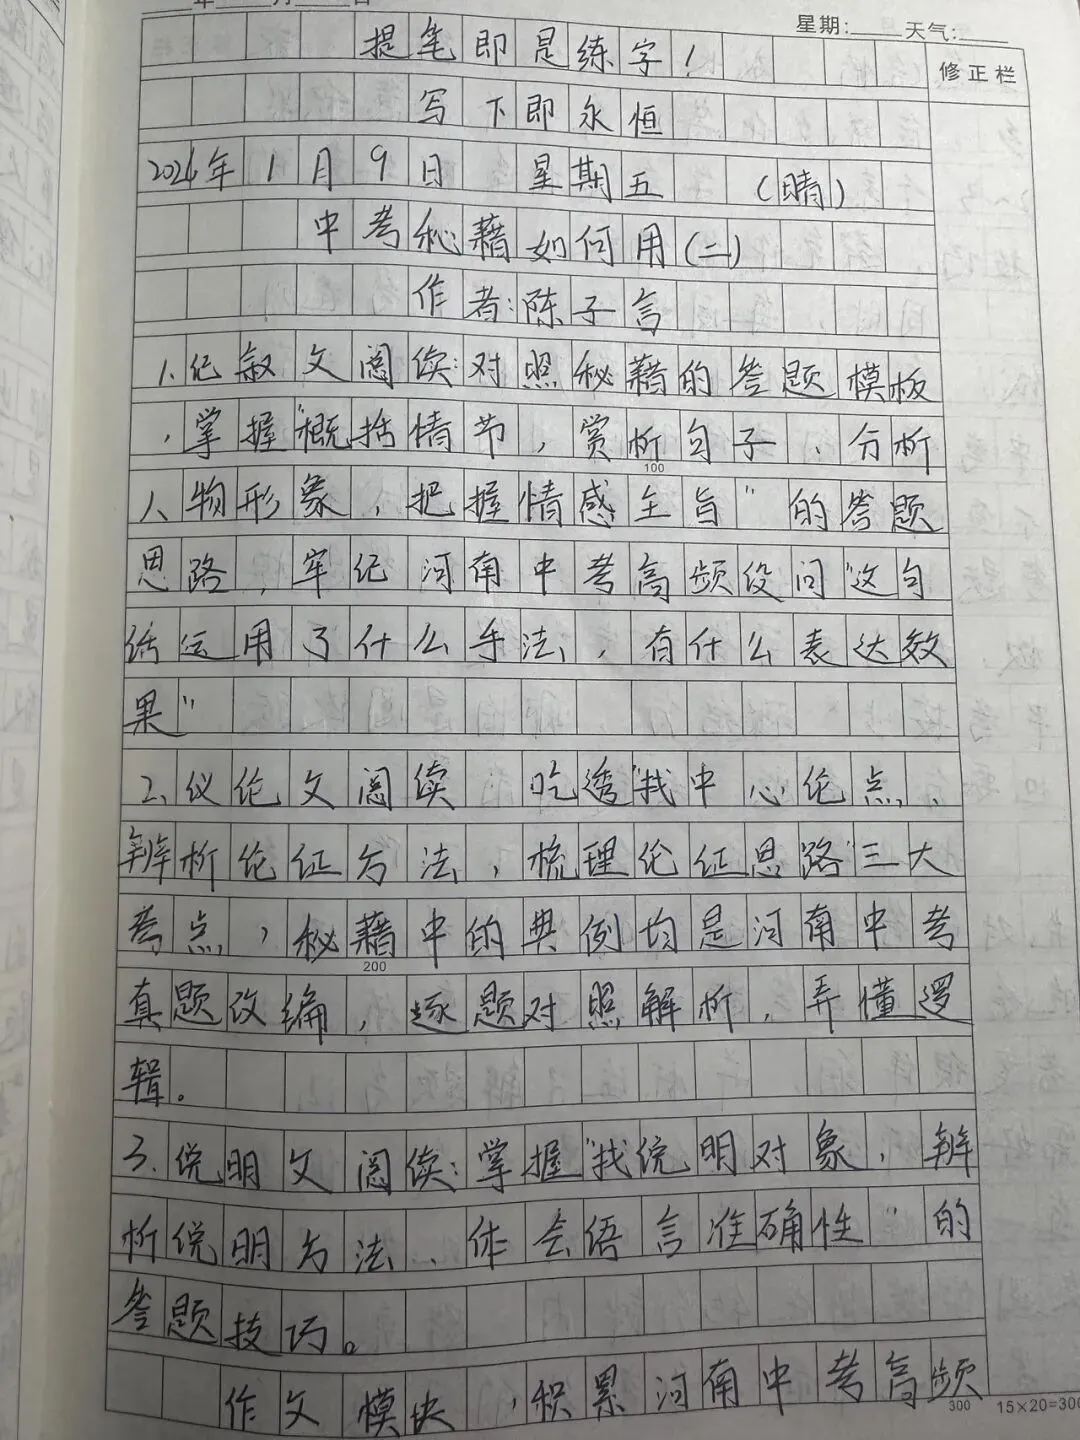 年 月 日
星期: 天气:
修正栏
提笔即是练字!
写下即永恒
2026年1月9日 星期五 (晴)
中考秘藉如何用(二)
作者:陈子言
1.纪叙文阅读:对照秘藉的答题模板
,掌握"概括情节,赏析句子、分析
人物形象,把握情感主旨"的答题
思路,牢纪河南中考高频设问"这句
话运用了什么手法,有什么表达效
果"
2.议论文阅读 吃透"找中心论点、
辨析论证方法,梳理论证思路"三大
考点,秘藉中的典例均是河南中考
真题改编,逐题对照解析,弄懂逻
辑。
3.说明文阅读:掌握"找说明对象,辨
析说明方法、体会语言准确性"的
答题技巧。
作文模块,积累河南中考高频
100
200
300
15×20=300